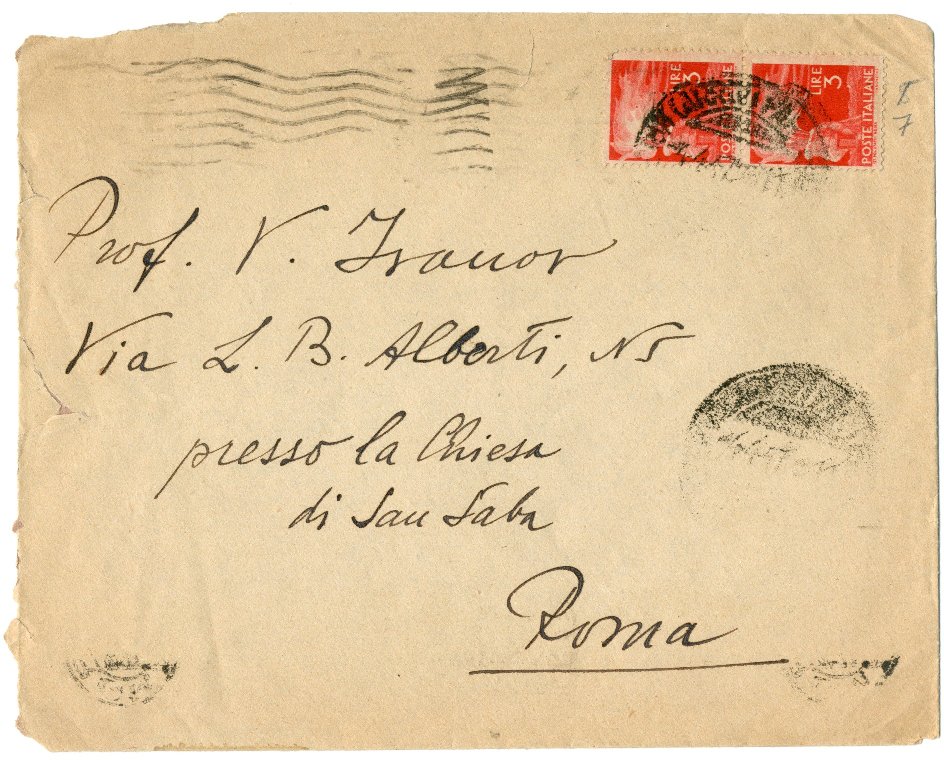 LIRE 3
POSTE ITALIANE
LIRE 3
POSTE ITALIANE
7
Prof. V. Ivanov
Via L. B. Alberti, N5
presso la Chiesa
di San Saba
Roma